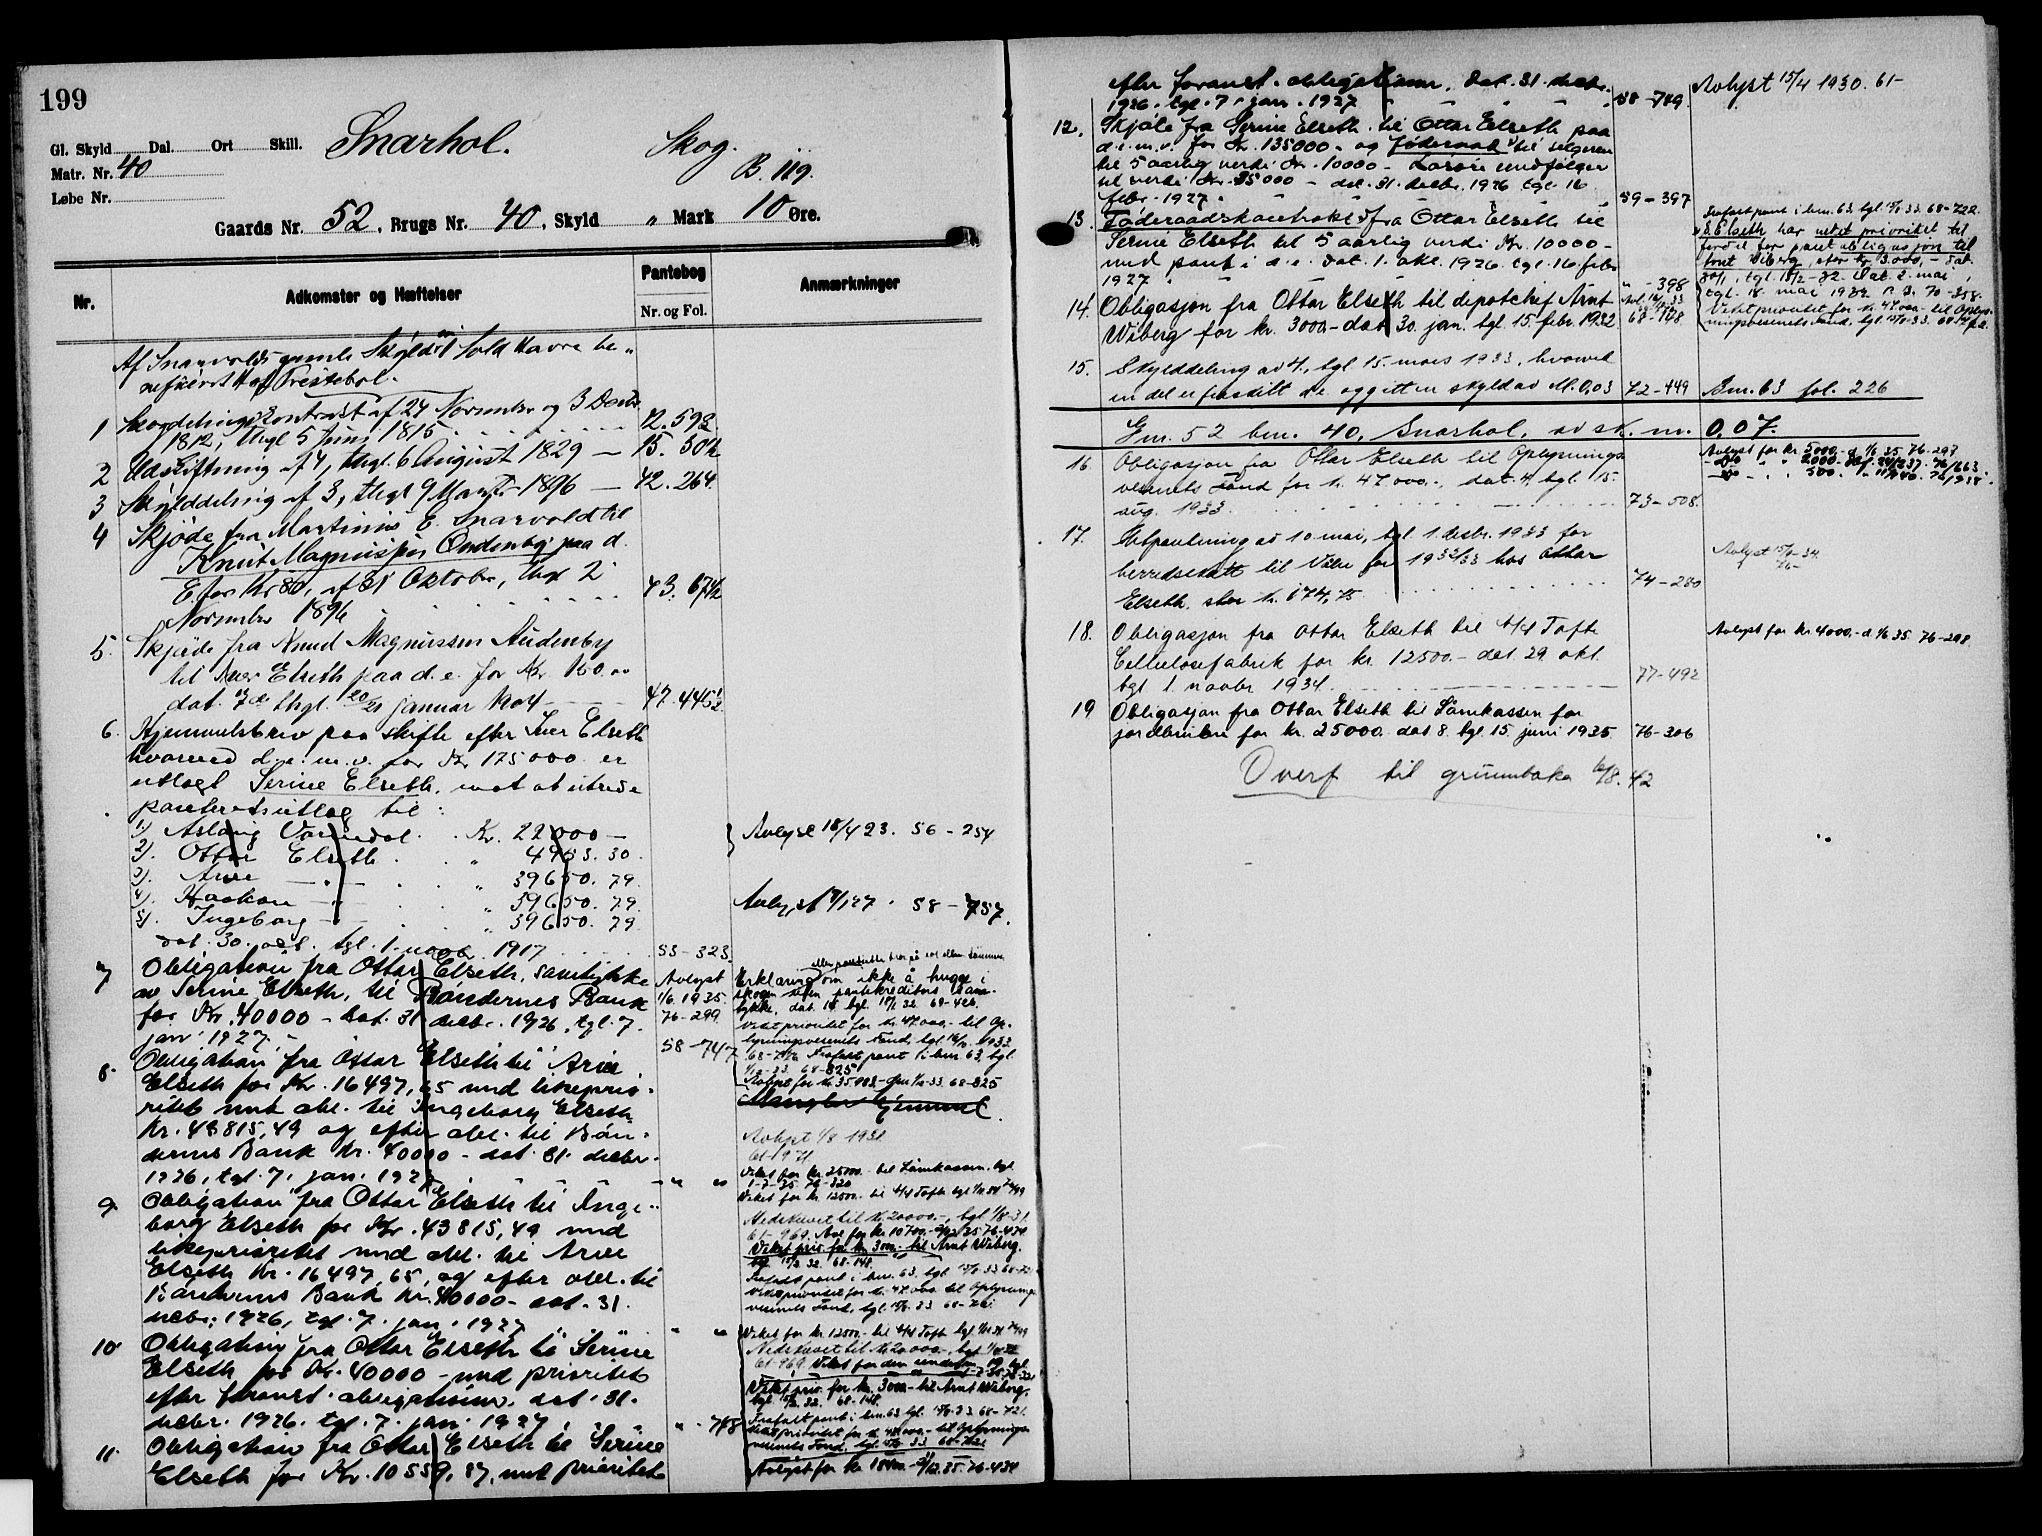 199
Gl. Skyld Dal. Ort Skill. Snarhol. Skog.
Matr. Nr. 40 B. 119.
Løbe Nr.
Gaards Nr. 52, Brugs Nr. 40, Skyld " Mark 10 Øre.
Nr. Adkomster og Hæftelser Pantebog Anmærkninger
Nr. og Fol.
Af Snarvolds gamle Skyld 1 Sold Havre be-
neficeret Præstebol.
1 Skovdelingskontract af 24 November og 3 Decbr
1812, thgl 5 Juni 1815 12.593
2 Udskiftning af 4, thgl. 6 August 1829 15. 30
3 Skylddeling af 3, thgl 9 Marts 1896 42.264
4 Skjøde fra Martinius E. Snarvold til
Knut Magnussen Ondenby paa d.
E. for Kr 80, af 21 Oktober, thgl 2
November 1896 43. 674
5. Skjøde fra Knud Magnussen Audenby
til Iver Elseth paa d.e. for Kr 150.00
dat. thgl. 20/21 januar 1904 47.445
6. Hjemmelsbrev paa skifte efter Iver Elseth
hvorved d.e. m.v. for Kr 175000 er
utlagt Serine Elseth, mot at utrede
panterets utlæg til:
1). Aslaug Varnedal Kr. 22000 — Avlyst 18/4 23. 56-254
2). Ottar Elseth " 4953.30
3). Arne " 39650.79
4). Haakon " 39650.79. Avlyst 17/1 27. 58-757.
5). Ingeborg " 39650.79
dat. 30. okt. tgl. 1. novbr 1917 53-323
7 Obligation fra Ottar Elseth, samtykke
av Serine Elseth, til Bøndernes Bank
for Kr. 40000 - dat. 31 decbr. 1926, tgl. 7.
jan. 1927 58-747
Avlyst
1/6.1935.
76-299
Erklæring om ikke å hugge i
skogen uten pantekreditors sam-
tykke, dat. tgl. 32 69-426.
Veket prioritet for kr. 47.000.- til Op-
lysningsvesenets Fond, tgl 1933
68-721. Frafalt pant i bnr. 63, tgl
33. 68-825
Avlyst for kr. 35.000.- 33. 68-825
Mangler hjemmel.
8. Obligation fra Ottar Elseth til Arne
Elseth for Kr. 16497,65 med likeprio-
ritet med obl. til Ingeborg Elseth
Kr. 43815,49 og efter obl. til Bøn-
dernes Bank Kr. 40000 - dat. 31. decbr.
1926, tgl. 7. jan. 1927 " "
Avlyst 1/8 1931
61-971
9. Obligation fra Ottar Elseth til Inge-
borg Elseth for Kr. 43815,49 med
likeprioritet med obl. til Arne
Elseth Kr. 16497,65, og efter obl. til
Bøndernes Bank Kr. 40000 - dat. 31.
decbr. 1926, tgl. 7. jan. 1927 " "
Veket for kr. 25000.- til Lånekassen, tgl
1-7-35 76-320
Veket for kr. 12500.- til A/S Tofte tgl
Nedskrevet til kr. 20000.-, tgl 1/8-31
61-969. Avl for kr 10700.- 35 76-434
Veket pris for kr. 3000.- til Arnt Wiberg.
tgl 15/2 32. 68-148.
Frafalt pant i bnr. 63, tgl. 33 68-721
Vekeprioritet for kr. 47.000 til Oplysnings-
vesenets Fond, tgl. 33 68-721
10. Obligation fra Ottar Elseth til Serine
Elseth for Kr. 40000 - med prioritet
efter foranst. obligationer, dat. 31.
decbr. 1926. tgl. 7. jan. 1927 " - 748
Veket for kr. 12500.- til A/S Tofte tgl
Nedskrevet til kr. 20.000.-, tgl
61-969. Veket for den under 19 tgl
Veket pris. for kr. 3000.- til Arnt Wiberg,
tgl. 15/2 32. 68-148.
Frafalt pant i bnr. 63 tgl. 33. 68-721.
Veket prioritet for kr. 47.000.- til Oplysnings-
vesenets Fond, tgl. 33 68-721
11. Obligation fra Ottar Elseth til Serine
Elseth for Kr. 10559,87, med prioritet
Avlyst for kr 35. 76-434
efter foranst. obligationer, dat. 31. decbr.
1926. tgl. 7. jan. 1927 58-749 Avlyst 15/4 1930. 61-
12. Skjøte fra Serine Elseth til Ottar Elseth paa
d.e. m.v. for Kr. 135000.- og føderaad til selgeren
til 5 aarlig verdi Kr. 10000 - Løsøre medfølger
til verdi Kr. 35000 - dat. 31. decbr. 1926 tgl 16
febr. 1927. 59-397
13. Føderaadskontrakt fra Ottar Elseth til
Serine Elseth til 5 aarlig verdi Kr. 10000 -
med pant i d.e. dat. 1. okt. 1926. tgl. 16 febr
1927 " - 398
Frafalt pant i bnr. 63, tgl. 33. 68-722.
S. Elseth har veket prioritet til
fordel for pantobligasjon til
Arnt Wiberg, stor kr 3.000,- dat.
30/1, tgl. 15/2-32. Dat. 2. mai,
tgl. 18. mai 1932 P.B. 70-358.
Veket prioritet for kr. 47.000.- til Oplys-
ningsvesenets Fond, tgl. 33. 68-722.
14. Obligasjon fra Ottar Elseth til depotchef Arnt
Wiberg for kr. 3000.- dat 30. jan. tgl. 15. febr. 1932 68-148
15. Skylddeling av 4., tgl 15. mars 1933, hvorved
en del er fraskilt d.e. og gitt en skyld av M. 0,03 72-449 Bnr. 63 fol. 226
Gnr. 52 bnr. 40, Snarhol, av sk. m. 0,07.
16. Obligasjon fra Ottar Elseth til Oplysnings-
vesenets Fond for kr. 47.000.-, dat. 4, tgl. 15.
aug. 1933 73-508.
Avlyst for kr 5000.- d. 1/6 35 76-297
do " " 2000.- 37. 76/663.
do " " 500. 40. 76/918.
17. Utpantning av 10 mai, tgl 1. desbr. 1933 for
herredsskatt til Våler for 1932/33 hos Ottar
Elseth, stor kr. 174,75 74-280
Avlyst 34.
76-
18. Obligasjon fra Ottar Elseth til A/S Tofte
Cellulosefabrik for kr. 12500.- dat. 29 okt.
tgl 1. novbr 1934. 77-492
Avlyst for kr 4000.- d. 1/6 35. 76-298
19 Obligasjon fra Ottar Elseth til Lånekassen for
jordbrukere for kr. 25000. dat 8. tgl. 15. juni 1935. 76-306
Overf til grunnboka /8.42